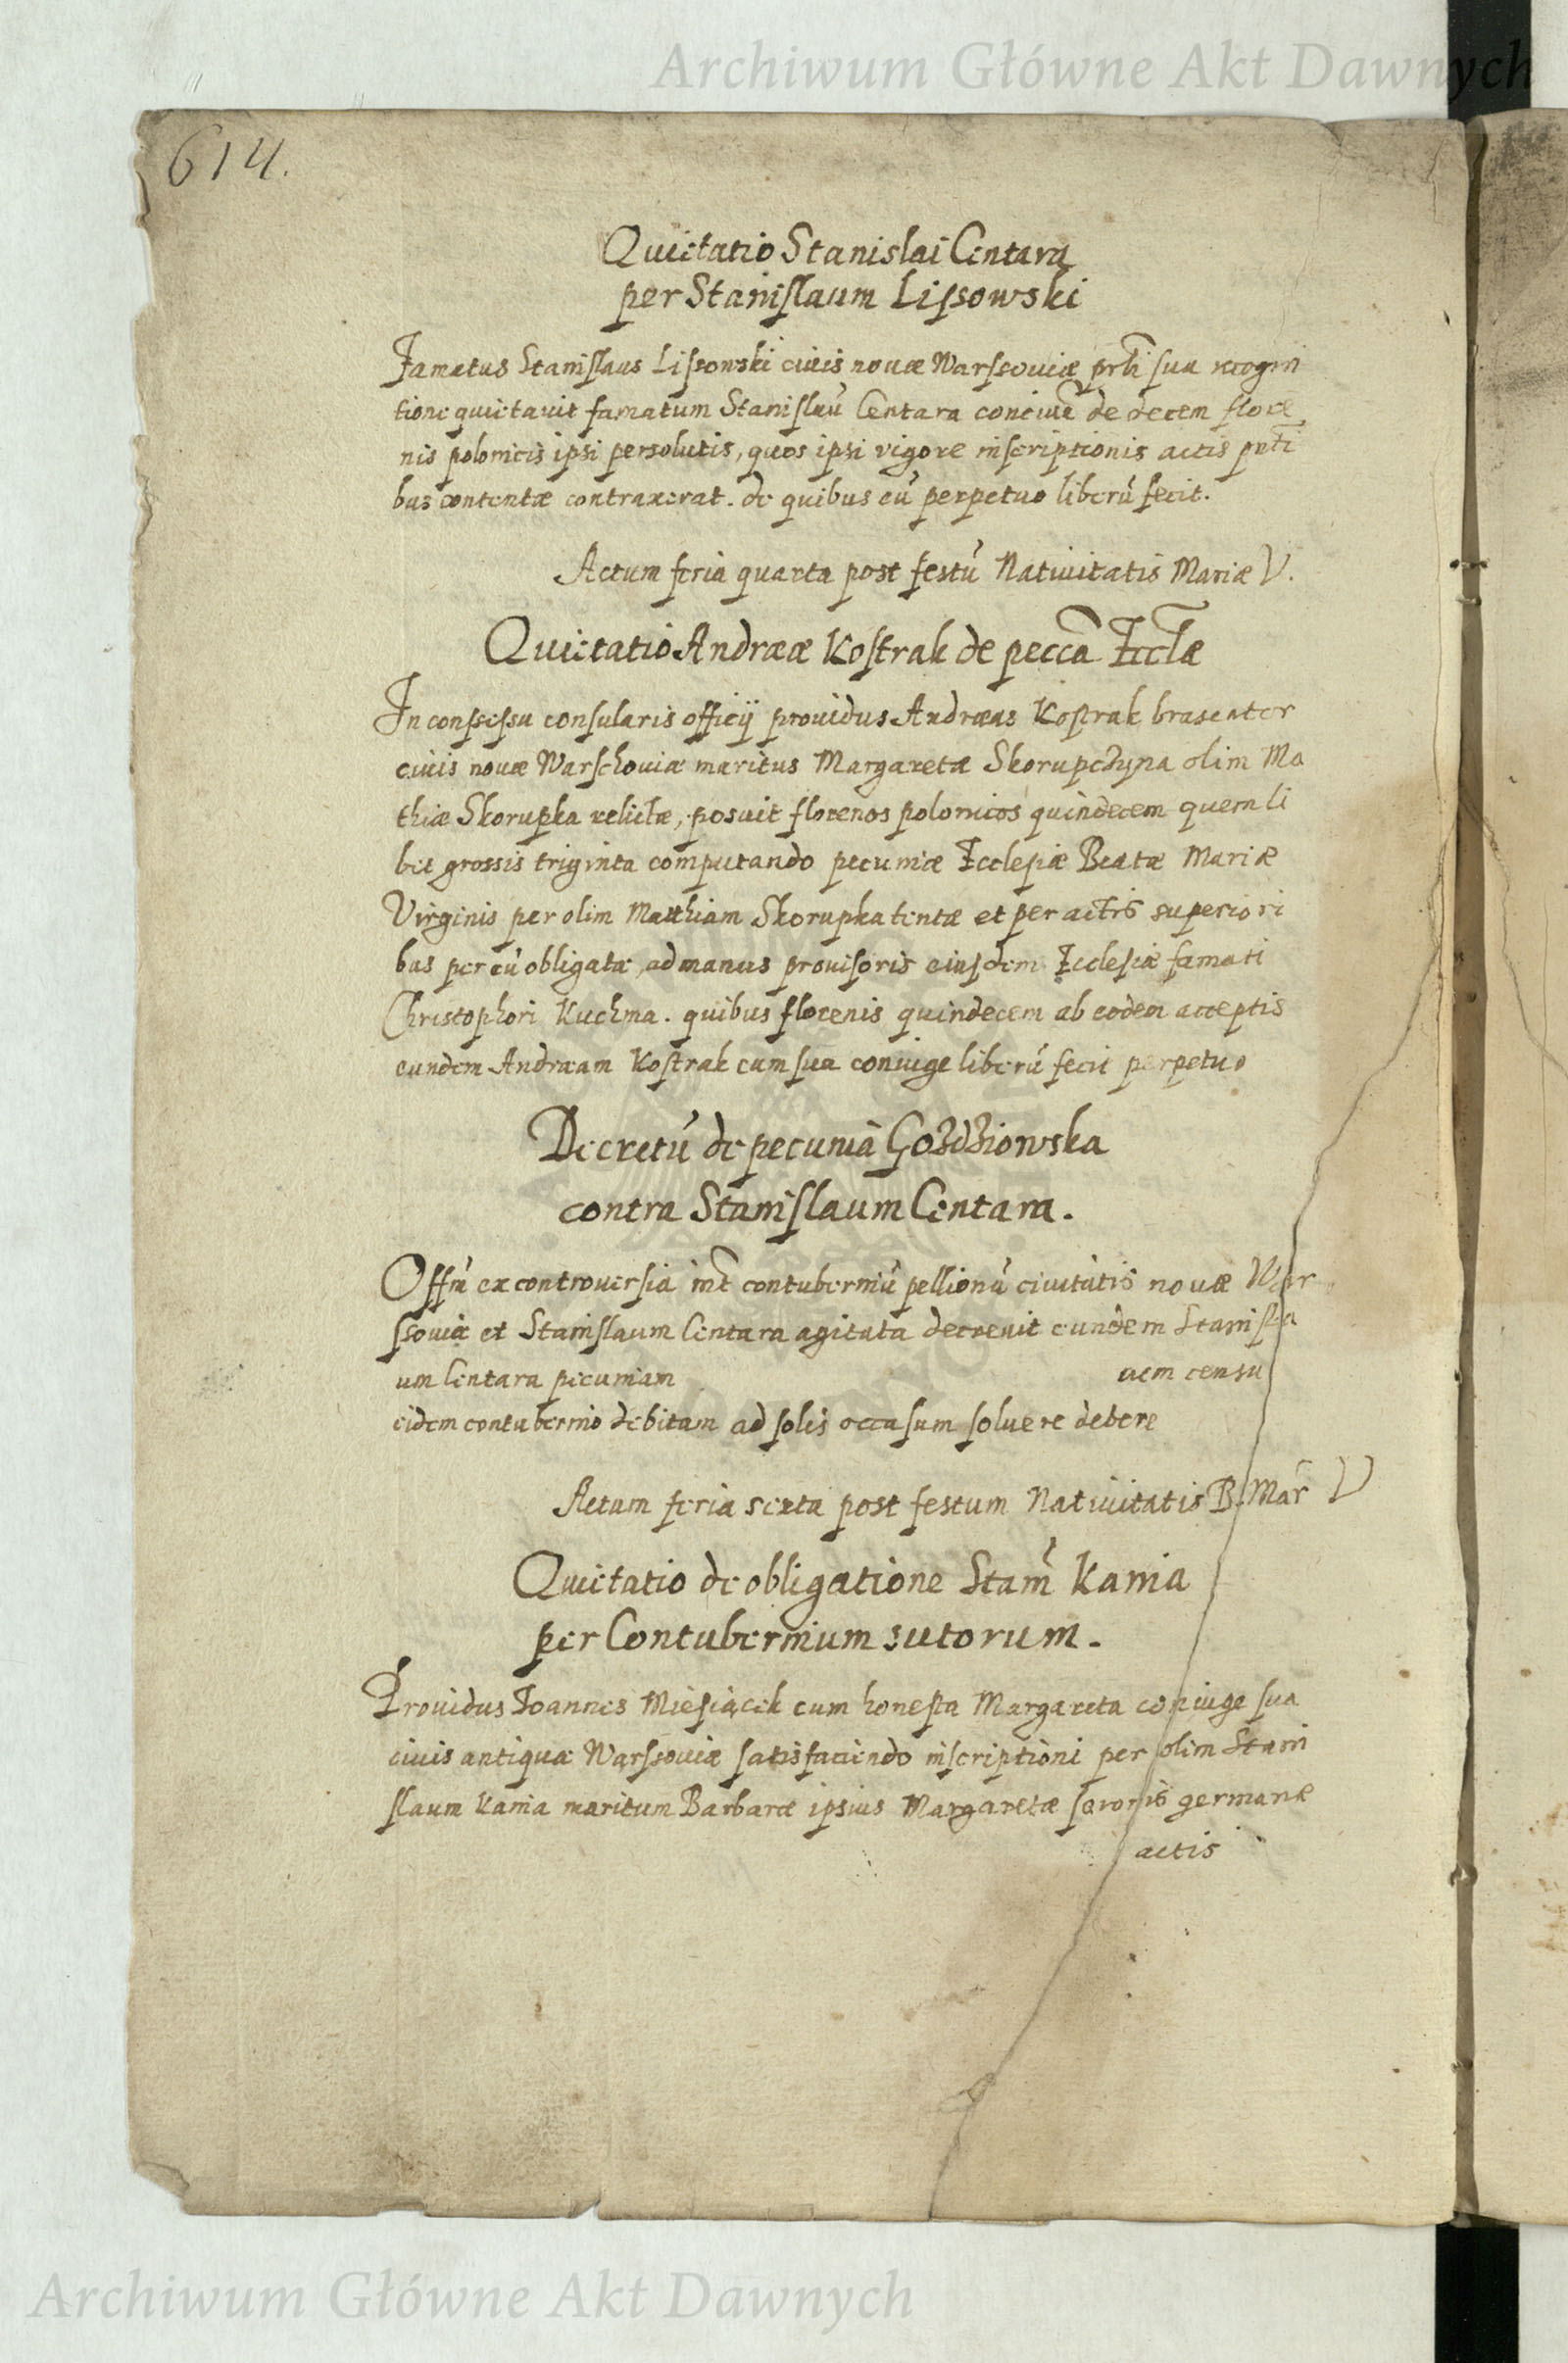 Archiwum Główne Akt Dawnych
614.
Quietatio Stanislai Centara
per Stanislaum Lissowski
Famatus Stanislaus Lissowski ciuis nouæ Warssouiæ prñti sua recogni
tione quietauit famatum Stanislaū Centara conciuē de decem flore
nis polonicis ipsi persolutis, quos ipsi vigore inscriptionis actis pñti
bus contentæ contraxerat. de quibus eū perpetuo liberū fecit.
Actum feria quarta post festū Natiuitatis Mariæ V.
Quietatio Andreæ Kostrak de peccã Ecclæ
In consessu consularis officij prouidus Andreas Kostrak braseator
ciuis nouæ Warschouiæ maritus Margaretæ Skorupczyna olim Ma
thiæ Skorupka relictæ, posuit florenos polonicos quindecem quemli
bet grossis triginta computando pecuniæ Ecclesiæ Beatæ Mariæ
Virginis per olim Matthiam Skorupka tentæ et per actis superiori
bus per eū obligatæ ad manus prouisoris eiusdem Ecclesiæ famati
Christophori Kuchma. quibus florenis quindecem ab eodem acceptis
eundem Andream Kostrak cum sua coniuge liberū fecit perpetuo
Decretū de pecunia Gozdziowska
contra Stanislaum Centara.
Offm̄ ex controuersia int̃ contuberniū pellionū ciuitatis nouæ War
ssouiæ et Stanislaum Centara agitata decreuit eundem Stanisla
um Centara pecuniam uem censu
eidem contubernio debitam ad solis occasum soluere debere
Actum feria sexta post festum Natiuitatis B. Mar V
Quietatio de obligatione Stanī Kania
per Contubernium sutorum.
Prouidus Ioannes Miesiącek cum honesta Margareta coniuge sua
ciuis antiquæ Warssouiæ satisfaciendo inscriptioni per olim Stani
slaum Kania maritum Barbaræ ipsius Margaretæ sororis germanæ
actis
Archiwum Główne Akt Dawnych